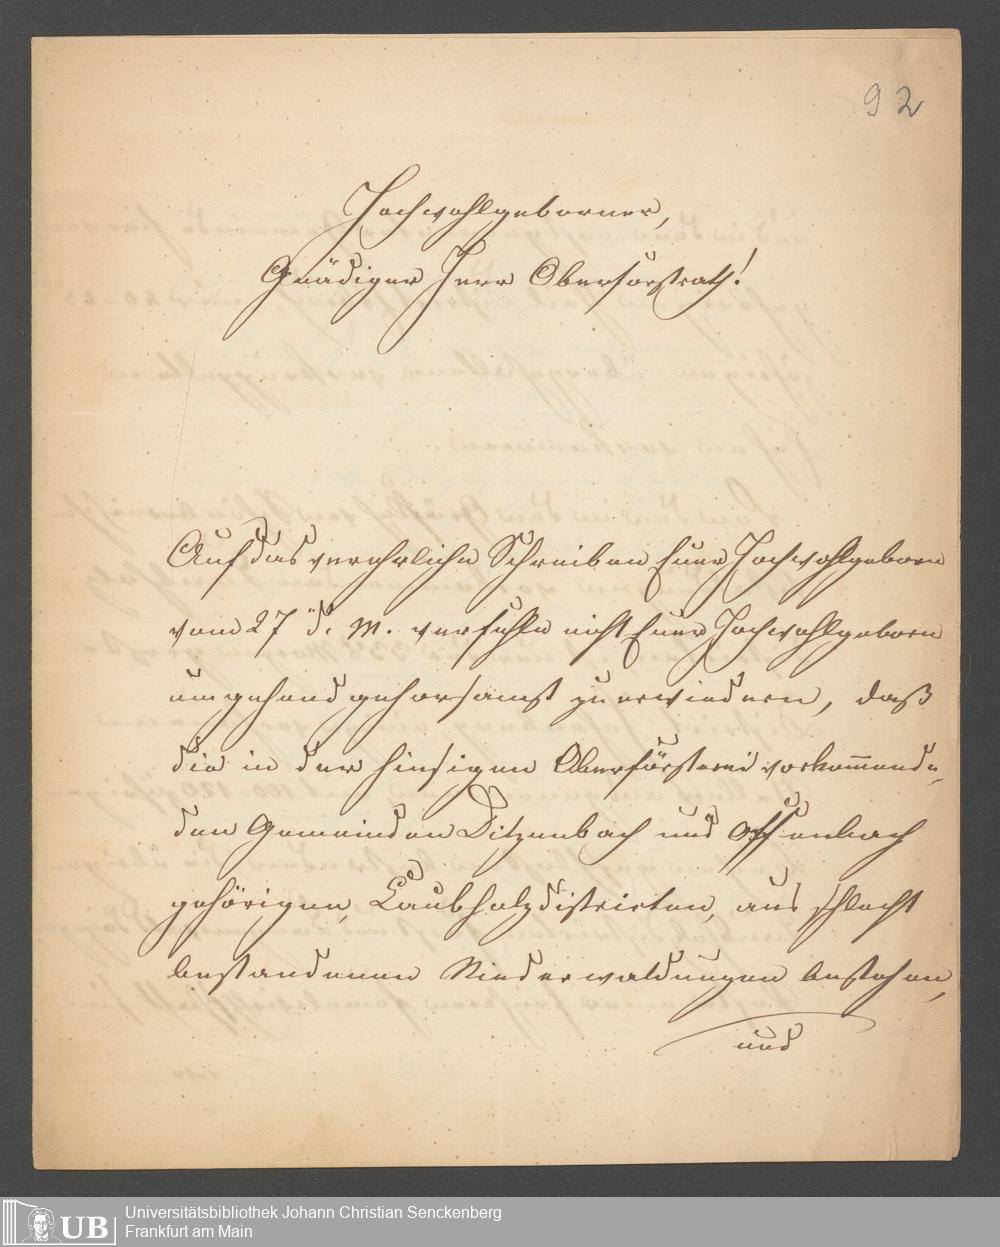 92
Hochwohlgeborner,
Gnädiger Herr Oberforstrath!
Auf das verehrliche Schreiben Euer Hochwohlgeborn
vom 27 d. M. verfehle nicht Euer Hochwohlgeborn
umgehend gehorsamst zu erwiedern, daß
die in der hiesigen Oberförsterei vorkommende,
den Gemeinden Ditzenbach und Offenbach
gehörigen, Laubholzdistricten, aus schlecht
bestandenen Niederwaldungen bestehen,
und
UB
Universitätsbibliothek Johann Christian Senckenberg
Frankfurt am Main